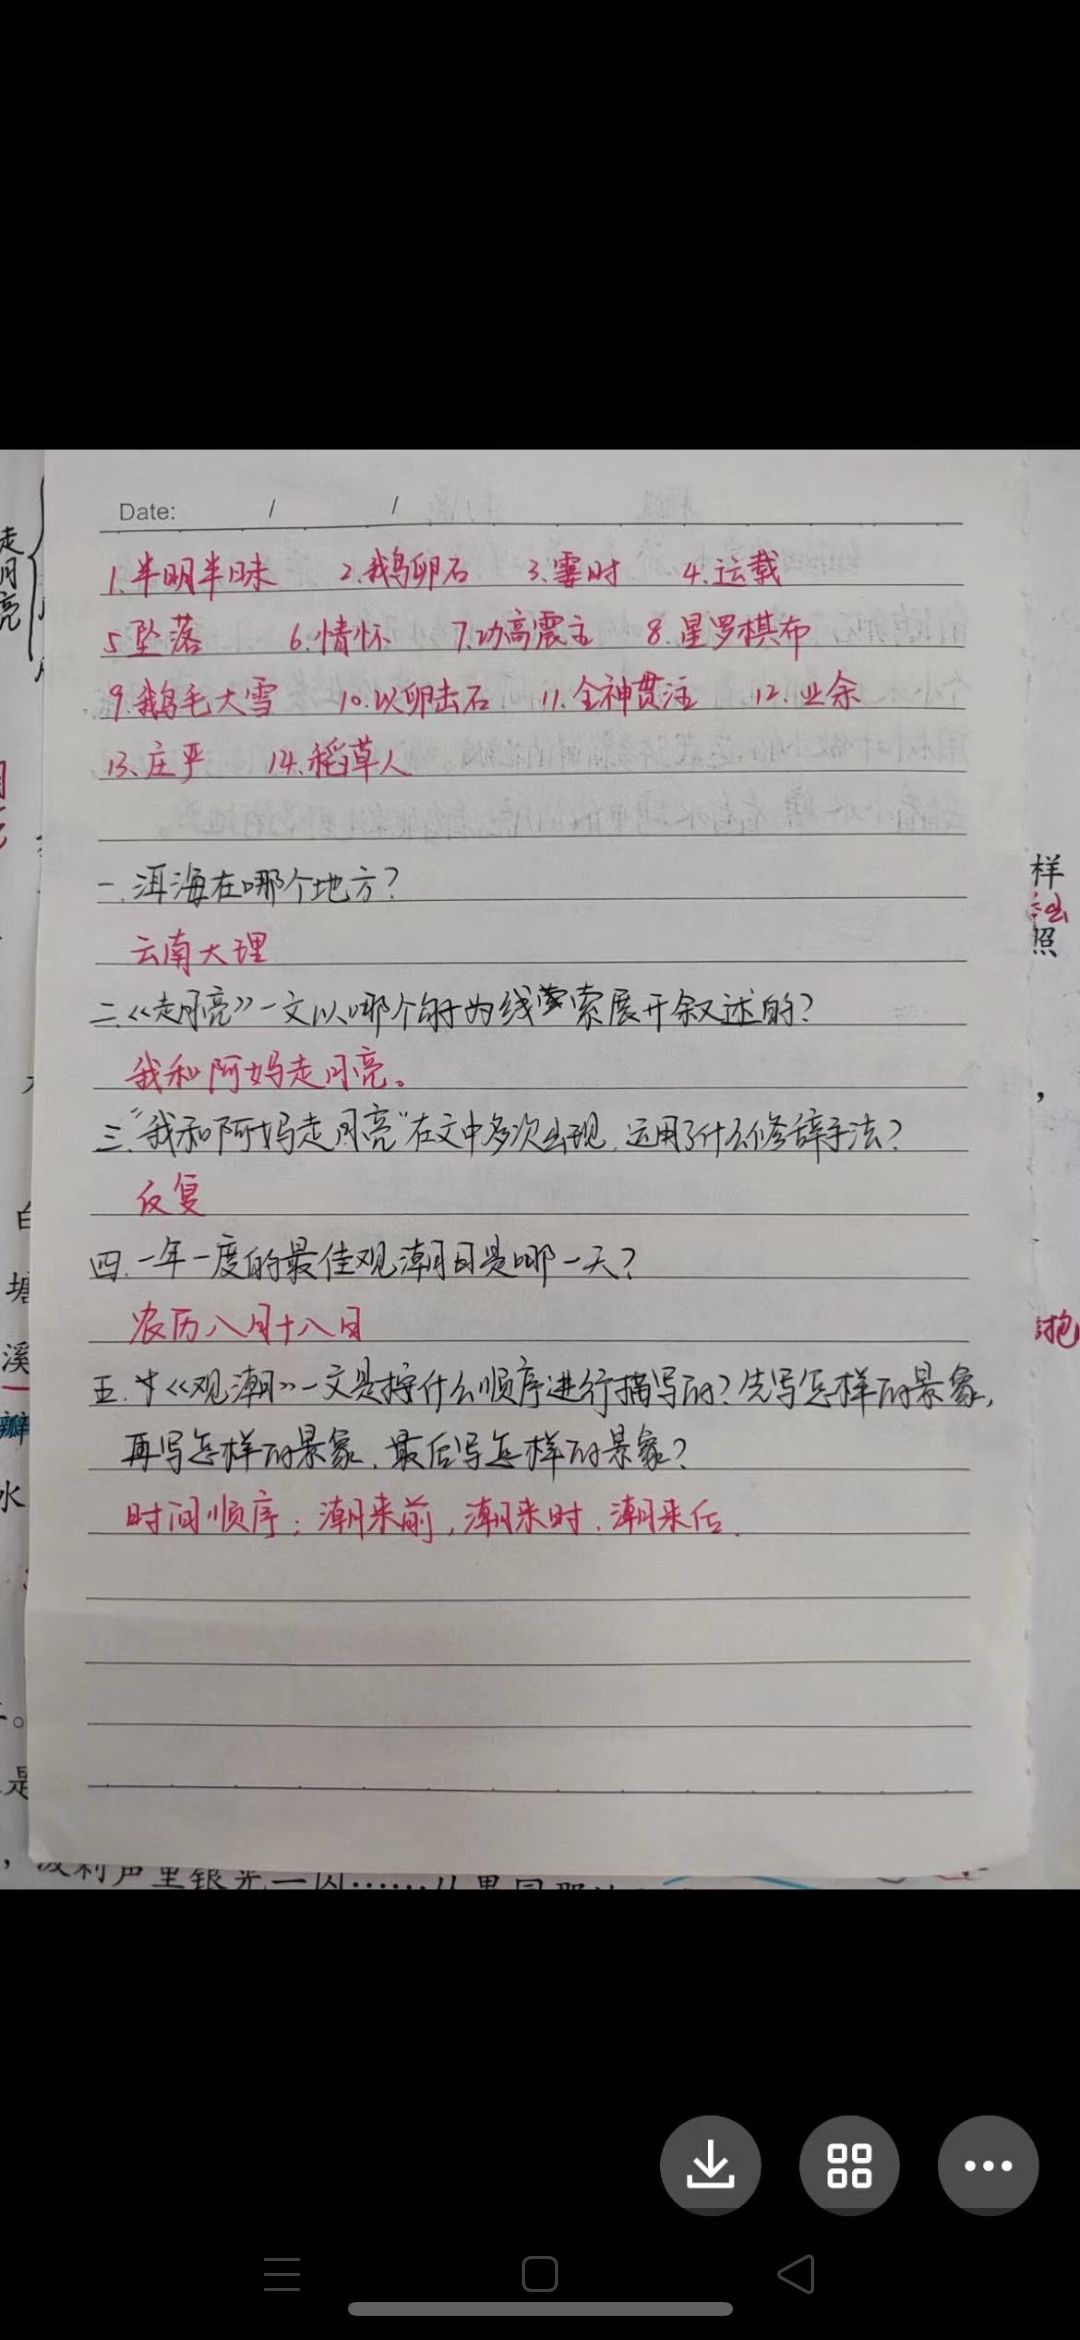 Date: / /
1.半明半昧 2.鹅卵石 3.霎时 4.运载
5.坠落 6.情怀 7.功高震主 8.星罗棋布
9.鹅毛大雪 10.以卵击石 11.全神贯注 12.业余
13.庄严 14.稻草人
一.洱海在哪个地方?
云南大理
二.《走月亮》一文以哪个句子为线索展开叙述的?
我和阿妈走月亮。
三.“我和阿妈走月亮”在文中多次出现,运用了什么修辞手法?
反复
四.一年一度的最佳观潮日是哪一天?
农历八月十八日
五.《观潮》一文是按什么顺序进行描写的?先写怎样的景象,
再写怎样的景象,最后写怎样的景象?
时间顺序:潮来前,潮来时,潮来后.
走月亮
塘
溪
瓣
水
样
照
抱
是